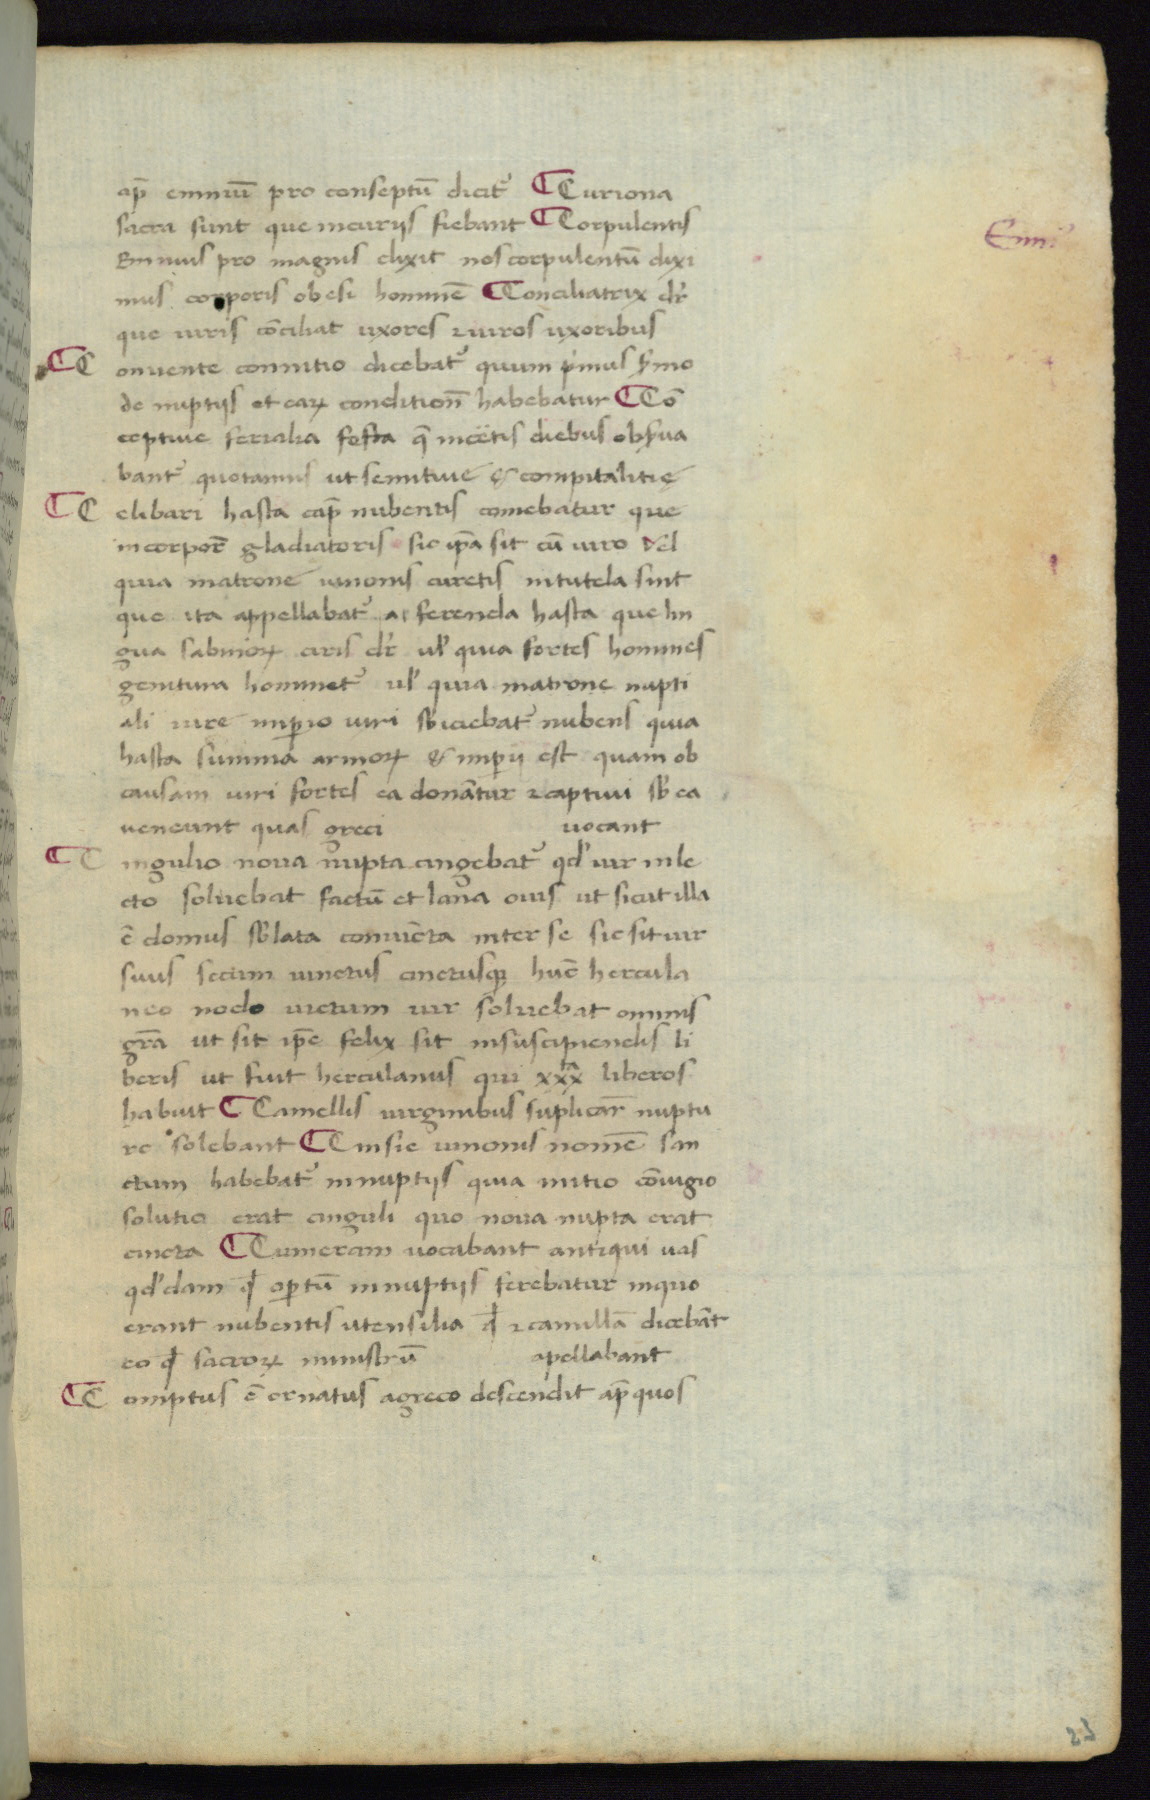 ap̄ enniū pro conseptū dicit᷑ ¶ Curiona
sacra sunt que incuriis fiebant ¶ Corpulentis
Ennius pro magnis dixit nos corpulentū dixi
Enni᷒
mus corporis obesi hominē ¶ Conciliatrix dr̄
que uiris cōciliat uxores ⁊ uiros uxoribus
¶ C onuente connitio dicebat᷑ quum p̄mus s̄mo
de nuptiis et earꝝ condition̄ habebatur ¶ Cō
ceptiue ferialia festa q̄ incētis diebus obs̄ua
bant᷑ quotannis ut semitiue & compitalitię
¶ C elibari hasta cap̄ nubentis comebatur que
incorpor̄ gladiatoris sic ip̄a sit cū uiro vel
quia matrone iunonis curetis intutela sint
que ita appellabat᷑ a ferenda hasta que lin
gua sabinorꝝ ciris dr̄ ul̓ quia fortes homines
genitura hominet᷑ ul̓ quia matrone nupti
ali iure imꝑio uiri sb̓iciebat᷑ nubens quia
hasta summa armorꝝ & imꝑii est quam ob
causam uiri fortes ea donātur ⁊ captiui sb̓ ea
ueneunt quas greci uocant
¶ C ingulio noua nupta cingebat᷑ qd̓ uir inle
cto soluebat factū et lana ouis ut sicut illa
ē domus sb̓lata conuēta inter se sic sit uir
suus secum uinctus cinctusqꝫ hūc hercula
neo nodo uictum uir soluebat ominis
gr̄a ut sit ip̄e felix sit insuscipiendis li
beris ut fuit herculanus qui xxx̄ liberos
habuit ¶ Camellis uirginibus suplicar̄ nuptu
re solebant ¶ Cinsie iunonis nomē san
ctum habebat᷑ innuptiis quia initio cōiugio
solutio erat cinguli quo noua nupta erat
cincta ¶ Cumeram uocabant antiqui uas
qd̓dam qđ oꝑtū innuptiis ferebatur inquo
erant nubentis utensilia qđ ⁊ camillā dicebāt
eo qđ sacrorꝝ ministrū apellabant
¶ C omptus ē ornatus agreco descendit ap̄ quos
23